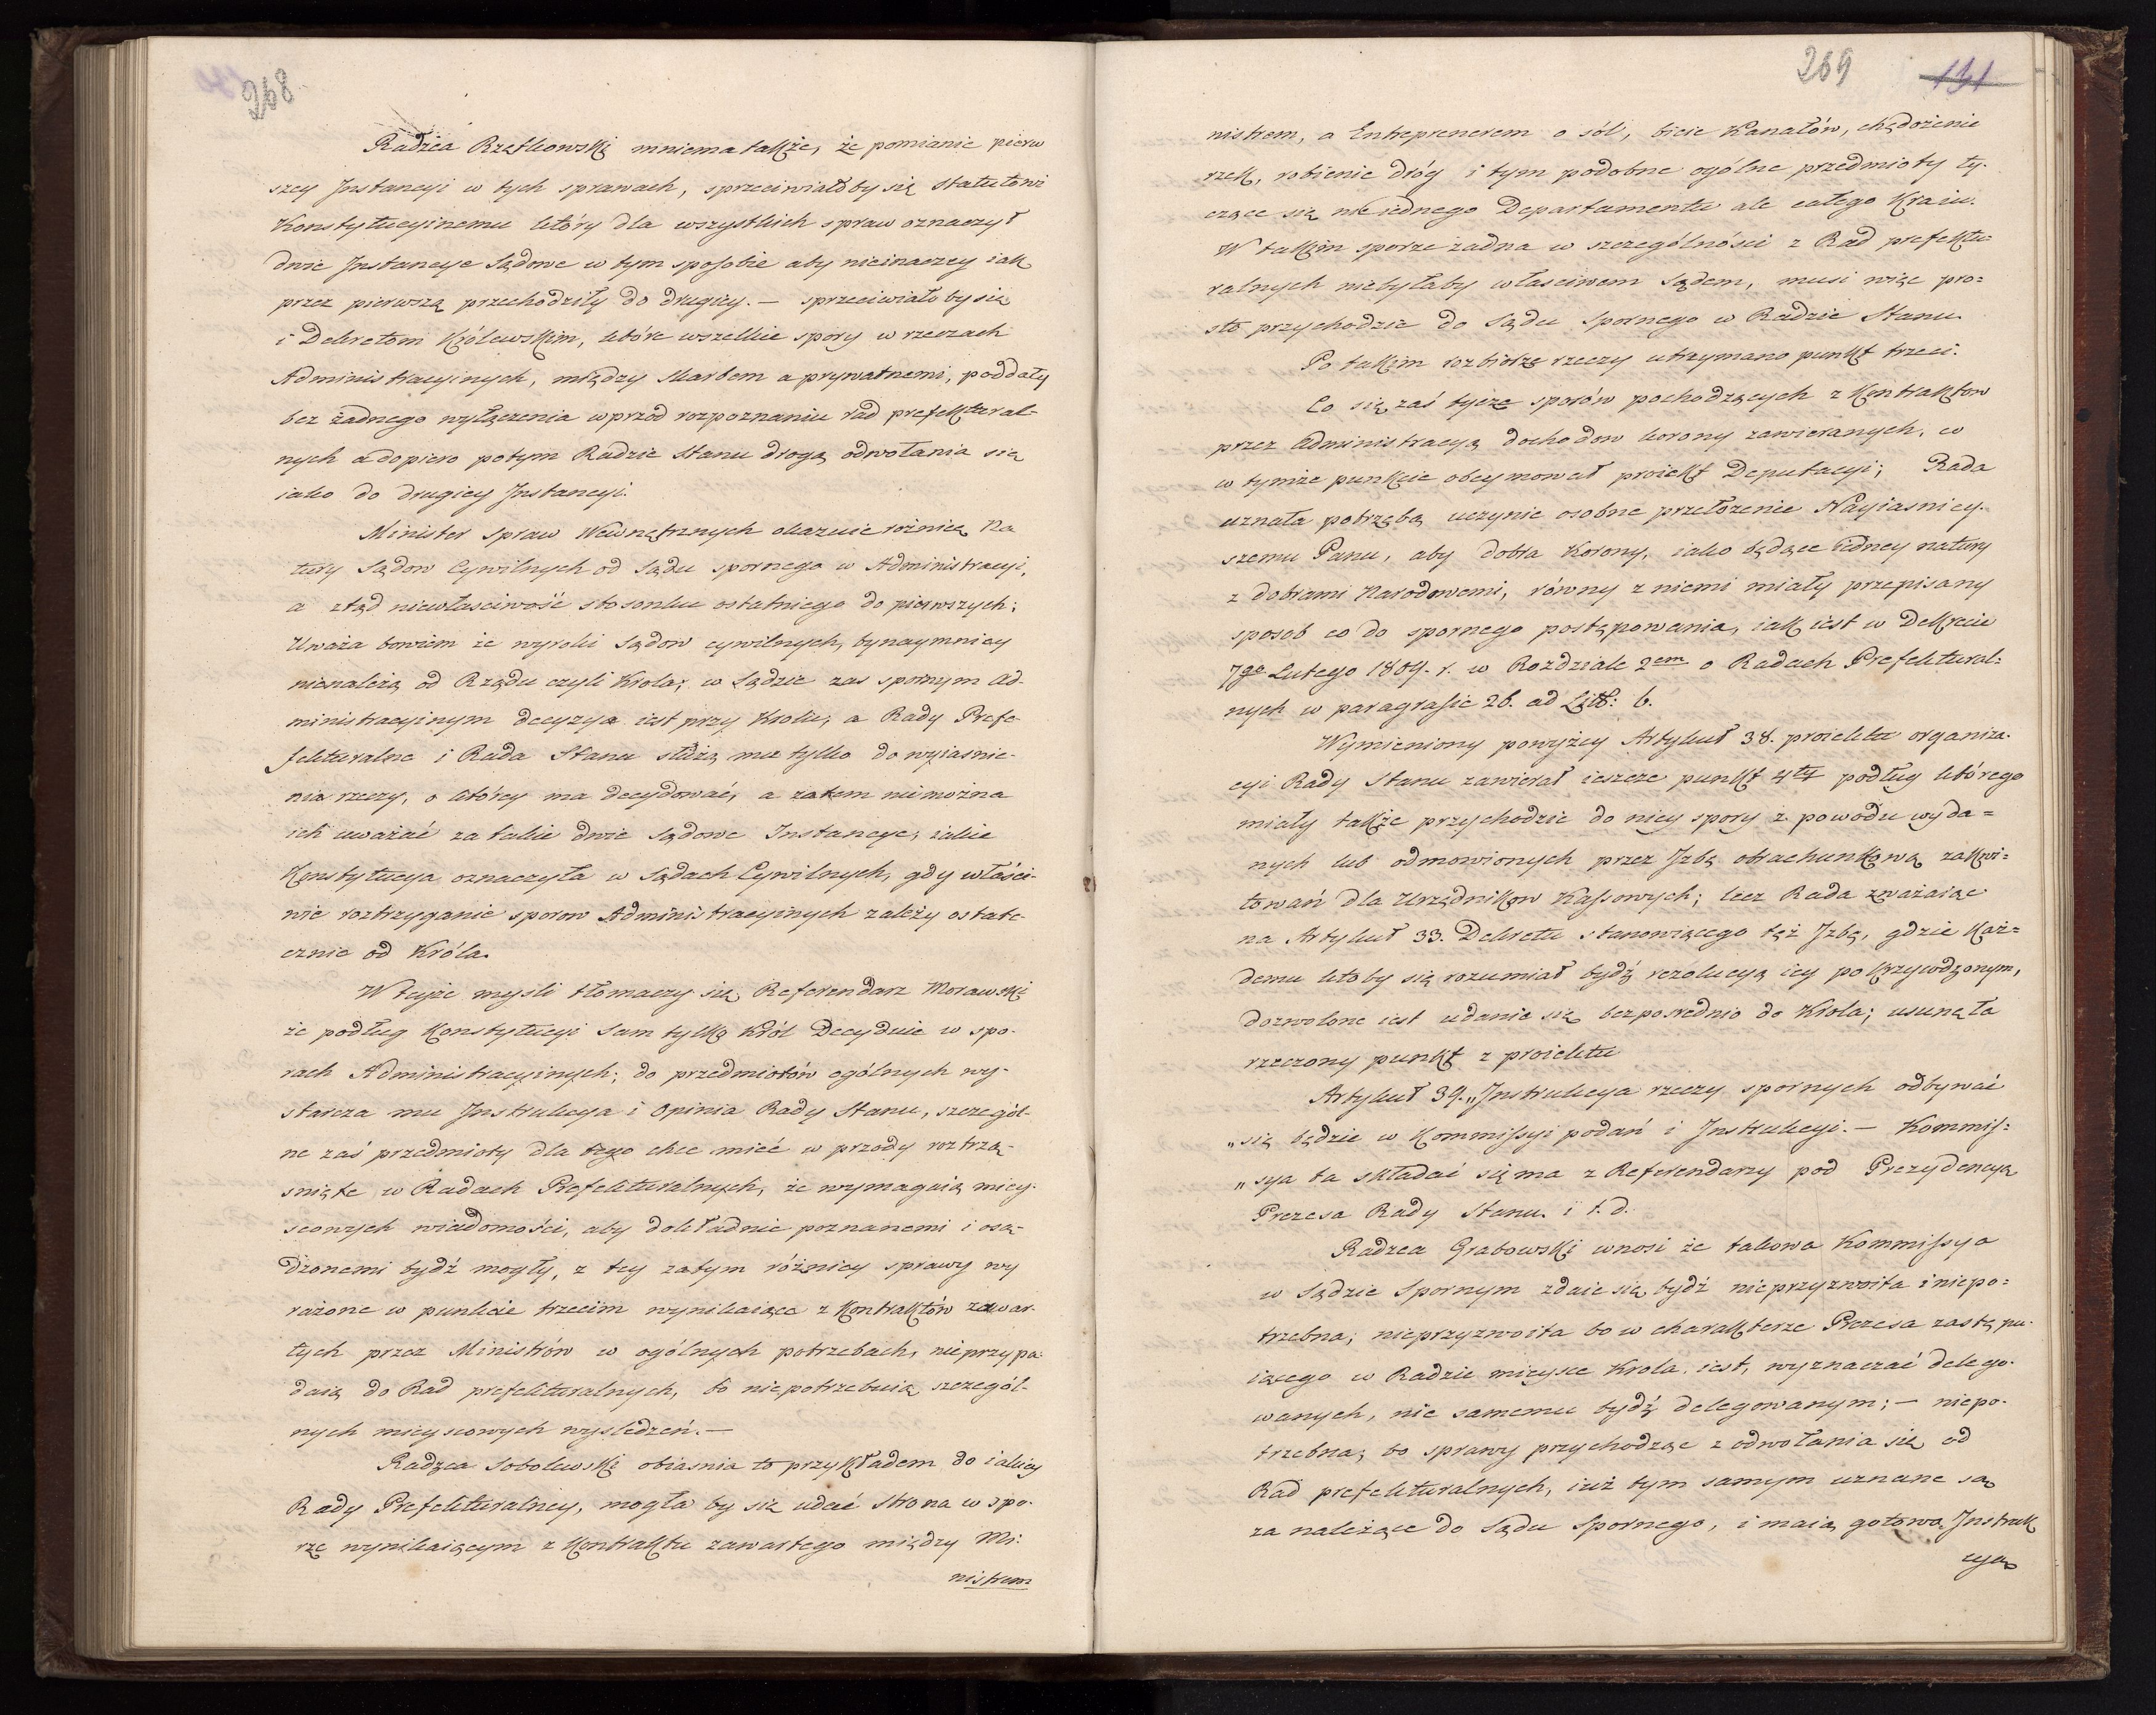 268
Radzca Rzętkowski mniema także, że pomianie pierw
szey Instancyi w tych sprawach, sprzeciwiałoby się Statutowi
Konstytucyinemu który dla wszystkich spraw oznaczył
dwie Instancye Sądowe w tym sposobie aby nieinaczey iak
przez pierwszą przechodziły do drugiey. — sprzeciwiałoby się
i Dekretom Królewskim, które wszelkie spory w rzeczach
Administracyinych, między skarbem a prywatnemi, poddały
bez żadnego wyłączenia wprzód rozpoznaniu rad prefektural-
nych a dopiero potym Radzie Stanu drogą odwołania się
iako do drugiey Instancyi.
Minister Spraw Wewnętrznych okazuie różnicę Na
tury Sądow Cywilnych od Sądu spornego w Administracyi,
a ztąd niewłasciwość stosonku ostatniego do pierwszych;
Uważa bowiem że wyroki Sądow cywilnych, bynaymniey
nienależą od Rządu czyli Krola; w Sądzie zas spornym Ad-
ministracyinym decyzya iest przy Krolu, a Rady Prefe-
fekturalne i Rada Stanu służą mu tylko do wyiaśnie-
nia rzeczy, o którey ma decydować, a zatem nie można
ich uważać za takie dwie Sądowe Instancye, iakie
Konstytucya oznaczyła w Sądach Cywilnych, gdy właści-
wie roztrzyganie sporow Administracyinych zależy ostate-
cznie od Króla.
W teyże mysli tłomaczy się Referendarz Morawski
że podług Konstytucyi Sam tylko Król Decyduie w spo-
rach Administracyinych; do przedmiotów ogólnych wy-
starcza mu Instrukcya i Opinia Rady Stanu, szczegól-
ne zaś przedmioty dla tego chce mieć w przody roztrzą-
snięte w Radach Prefekturalnych, że wymagaią miey-
scowych wiadomości, aby dokładnie poznanemi i osą-
dzonemi bydź mogły, z tey zatym różnicy sprawy wy
rażone w punkcie trzecim wynikaiące z Kontraktów zawar-
tych przez Ministrów w ogólnych potrzebach, nieprzypa-
daią do Rad prefekturalnych, bo niepotrzebuią szczegól-
nych mieyscowych wysledzeń. —
Radzca Sobolewski obiasnia to przykładem do iakiey
Rady Prefekturalney, mogła by się udać Strona w spo-
rze wynikaiącym z Kontraktu zawartego między Mi:
nistrem
269 131
nistrem, a Entreprenerem o sól, bicie Kanałów, chędożenie
rzek, robienie dróg i tym podobne ogólne przedmioty ty-
czące się nie iednego Departamentu ale całego Kraiu.
W takim sporze żadna w szczególności z Rad prefektu-
ralnych niebyłaby własciwem Sądem, musi więc pro=
sto przychodzić do Sądu Spornego w Radzie Stanu.
Po takim rozbiorze rzeczy utrzymano punkt trzeci.
Co się zaś tycze sporów pochodzących z Kontraktow
przez Administracyą dochodow korony zawieranych, co
w tymże punkcie obeymował proiekt Deputacyi; Rada
uznała potrzebą uczynić osobne przełożenie Nayiasniey-
szemu Panu, aby dobra Korony, iako będące iedney natury
z dobrami Narodowemi, równy z niemi miały przepisany
sposob co do spornego postępowania, iak iest w Dekrecie
7go Lutego 1809. r. w Rozdziale 2em o Radach Prefektural=
nych w paragrafie 26. ad Litt: b.
Wymieniony powyżey Artykuł 38. proiektu organiza-
cyi Rady Stanu zawierał ieszcze punkt 4ty podług którego
miały także przychodzić do niey spory z powodu wyda=
nych lub odmowionych przez Izbę obrachunkową zakwi=
towań dla Urzędnikow Kassowych; lecz Rada zważaiąc
na Artykuł 33. Dekretu stanowiącego tęż Izbę, gdzie każ=
demu ktoby się rozumiał bydź rezolucyą iey pokrzywdzonym,
dozwolone iest udanie się bezposrednio do Krola; usunęła
rzeczony punkt z proiektu
Artykuł 39. „Instrukcya rzeczy spornych odbywać
„się będzie w Kommissyi podań i Instrukcyi. — Kommis=
„sya ta składać się ma z Referendarzy pod Prezydencyą
Prezesa Rady Stanu. i t. d.
Radzca Grabowski wnosi że takowa Kommissya
w Sądzie Spornym zdaie się bydź nieprzyzwoita i niepo=
trzebna; nieprzyzwoita bo w charakterze Prezesa zastępu-
iącego w Radzie mieysce Krola, iest, wyznaczać delego-
wanych, nie samemu bydź delegowanym; — niepo-
trzebna; bo sprawy przychodząc z odwołania się od
Rad prefekturalnych, iuż tym samym uznane są
za należące do Sądu Spornego, i maią gotową Instruk
cyą